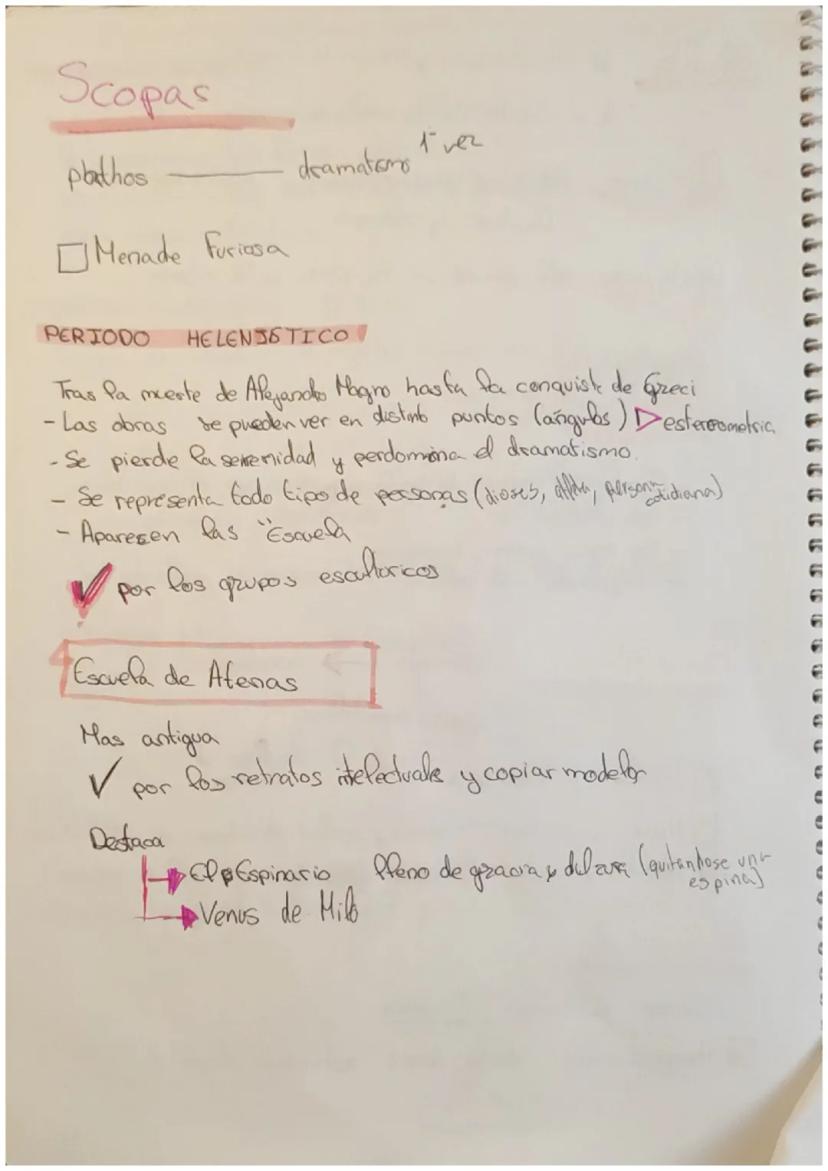 Scopas
1ª vez
pbathos — dramatismo
Menade Furiosa
PERIODO HELENISTICO
Tras la muerte de Alejandro Magno hasta la conquista de Greci
- Las obras se pueden ver en distint puntos (angulos) ▷ estereometric
- Se pierde la serenidad y perdomina el dramatismo.
- Se representa todo tipo de personas (dioses, persona cotidiana)
- Aparecen las "Escuela
✓ por los grupos escultoricos
Escuela de Atenas
Mas antigua
✓ por los retratos intelectuale y copiar modelos
Destaca
→ El Espinario lleno de gracia y dulzura (quitandose una espina)
→ Venus de Milo